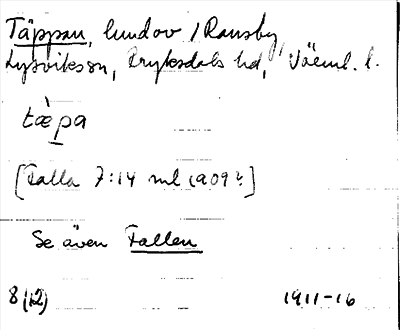 Täppan, lundov / Ransby,
Lysviks sn, Fryksdals hd, Värml. l.
tæ̀pa
[Falla 7:14 ml (a09?]
Se även Fallen
8 (12) 1911-16